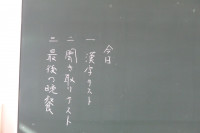 今日
一 漢字テスト
二 聞き取りテスト
三 最後の晩餐